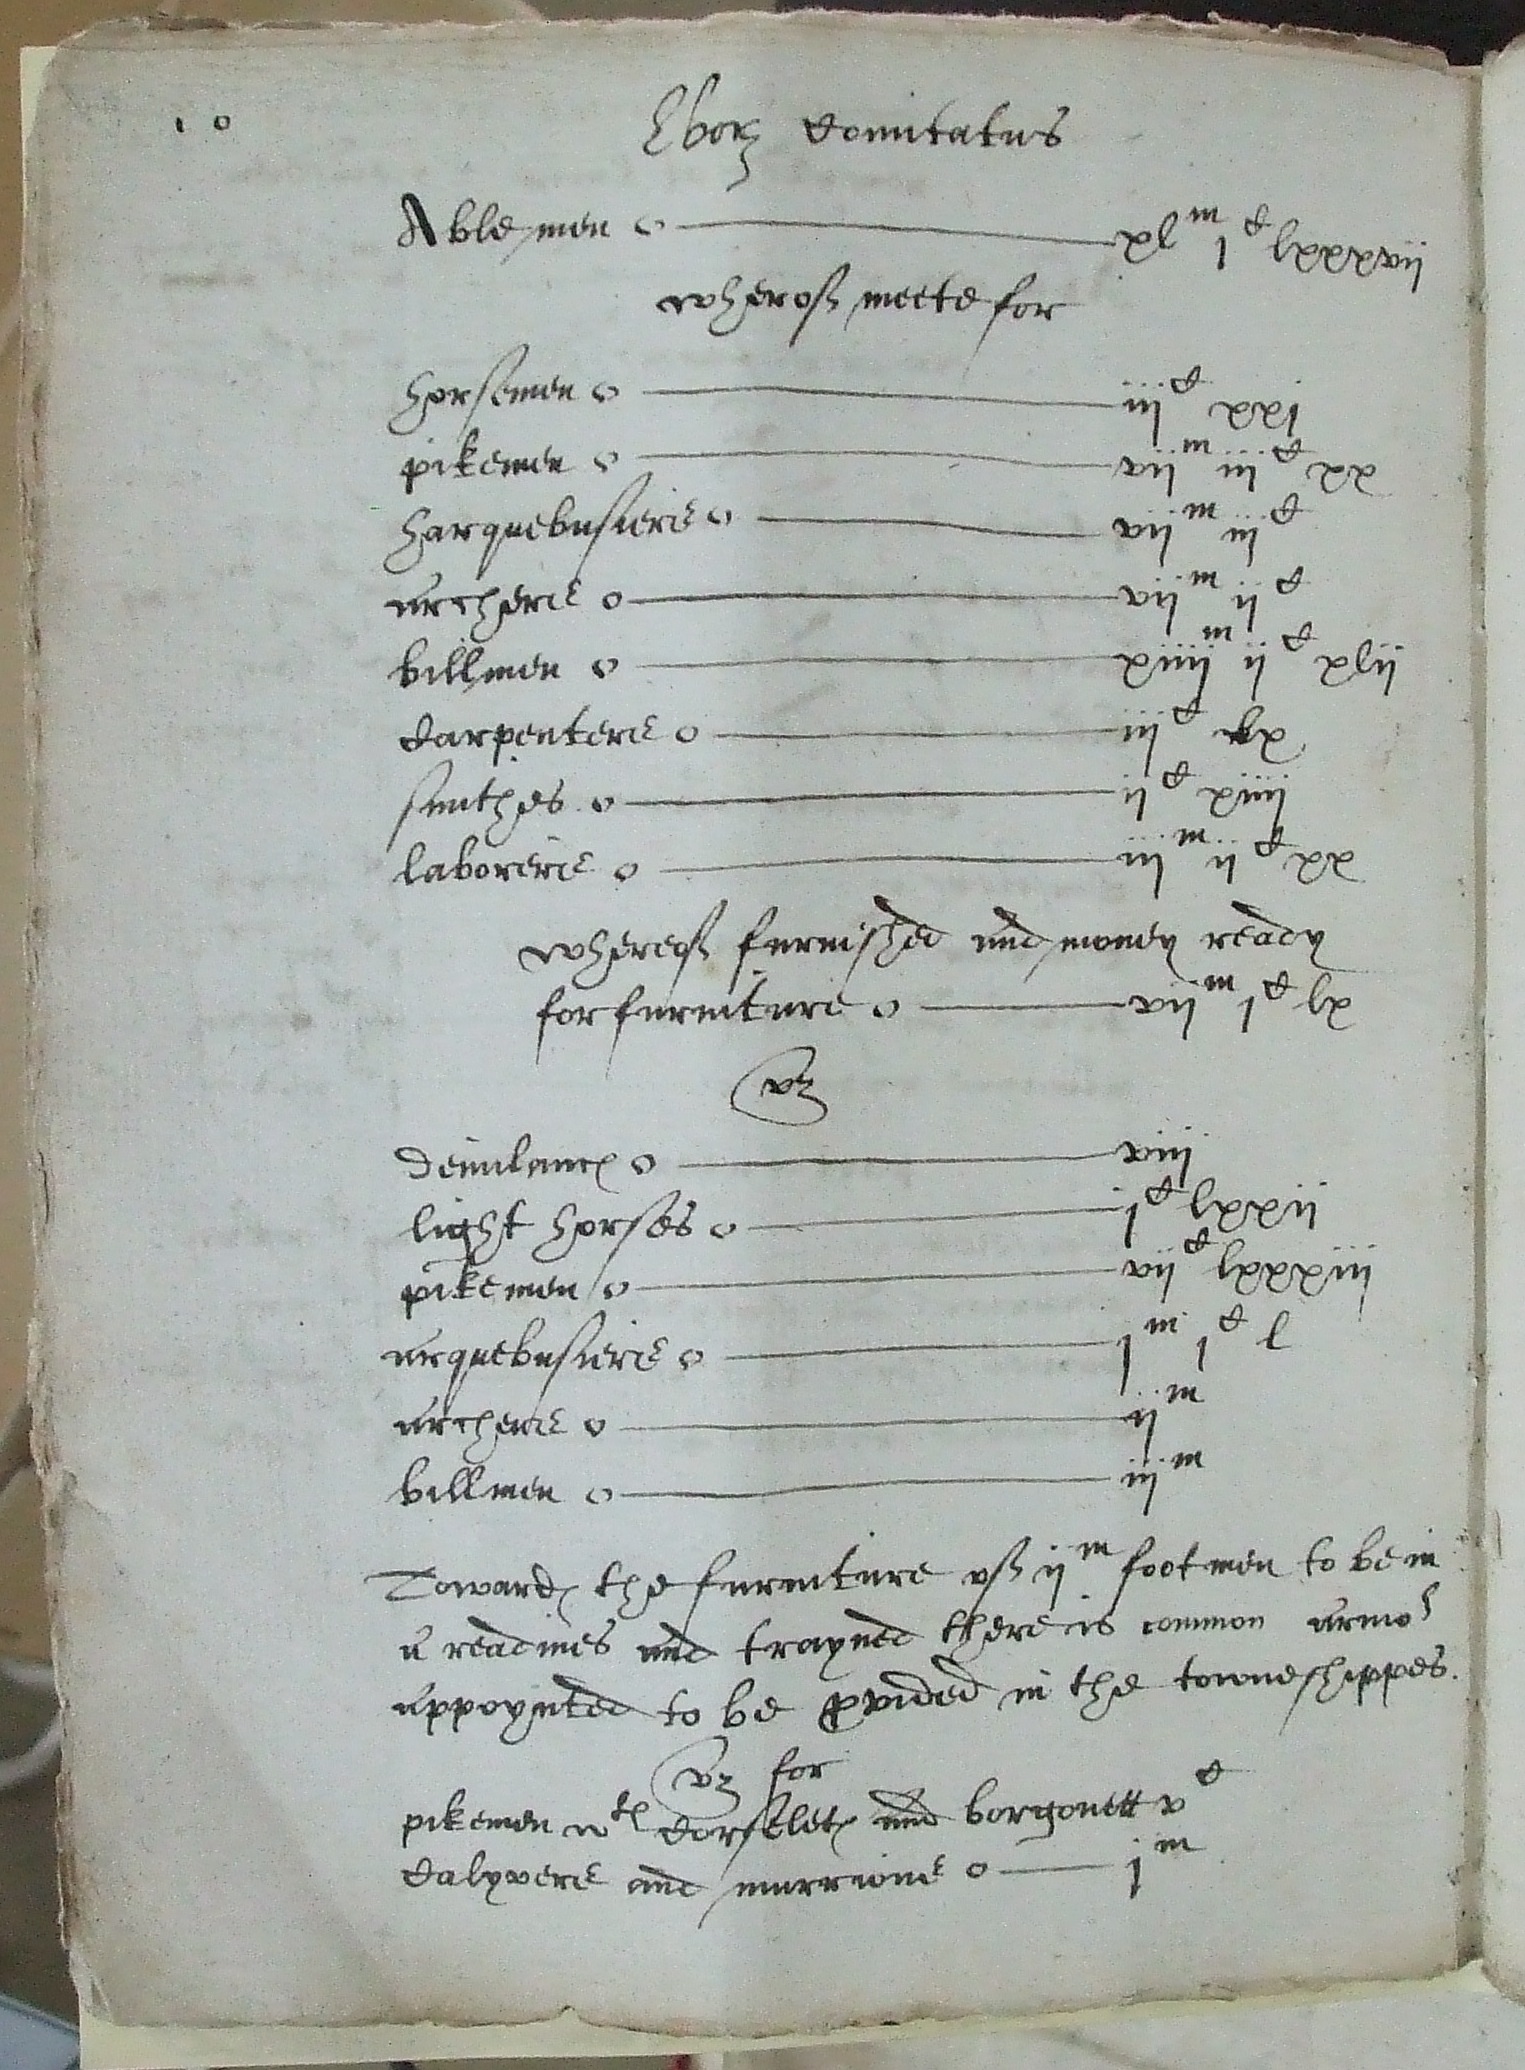 10
Ebor Comitatus
Able men o xl^m j^c lxxxvij
wherof meete for
horsemen o iij^c xxj
pikemen o vij^m iij^c xx
harquebusiers o vij^m iij^c
archers o vij^m ij^c
billmen o xiiij^m ij^c xlij
Carpenters o iij^c lx
smithes o ij^c xiiij
laborers o iij^m ij^c xx
whereof furnished and money ready
for furniture o vij^m j^c lx
vz
Demilances o viij
light horses o j^c lxxij
pikemen o vij^c lxxxiij
arquebusiers o j^m j^c l
archers o ij^m
billmen o iij^m
Towardes the furniture of ij^m footmen to be in
a readines and trayned there is common armor
appoynted to be pvided in the towneshippes.
vz for
pikemen w^th Corseletes and borgonett v^c
Calyvers and murrions o j^m